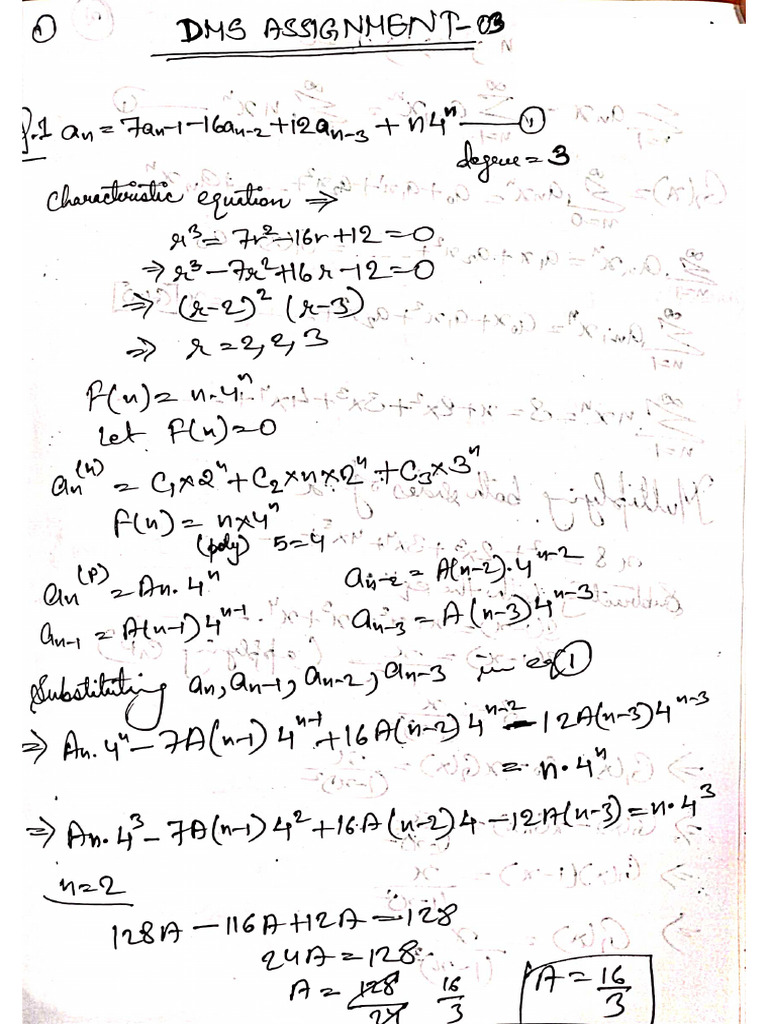 ①
DMS ASSIGNMENT-03
Q.1 an = 7an-1 - 16an-2 + 12an-3 + n4ⁿ —— ①
degree = 3
Characteristic equation ⇒
r³ = 7r² - 16r + 12 = 0
⇒ r³ - 7r² + 16r - 12 = 0
⇒ (r-2)² (r-3)
⇒ r = 2, 2, 3
F(n) = n.4ⁿ
let F(n) = 0
an⁽ʰ⁾ = C₁×2ⁿ + C₂×n×2ⁿ + C₃×3ⁿ
F(n) = n×4ⁿ
(poly) S=4
an⁽ᴾ⁾ = An.4ⁿ an-2 = A(n-2).4ⁿ⁻²
an-1 = A(n-1)4ⁿ⁻¹ an-3 = A(n-3)4ⁿ⁻³
Substituting an, an-1, an-2, an-3 in eq ①
⇒ An.4ⁿ - 7A(n-1)4ⁿ⁻¹ + 16A(n-2)4ⁿ⁻² - 12A(n-3)4ⁿ⁻³
= n.4ⁿ
⇒ An.4³ - 7A(n-1)4² + 16A(n-2)4 - 12A(n-3) = n.4³
n=2
128A - 116A + 12A = 128
24A = 128
A = 128/24 16/3 A = 16/3